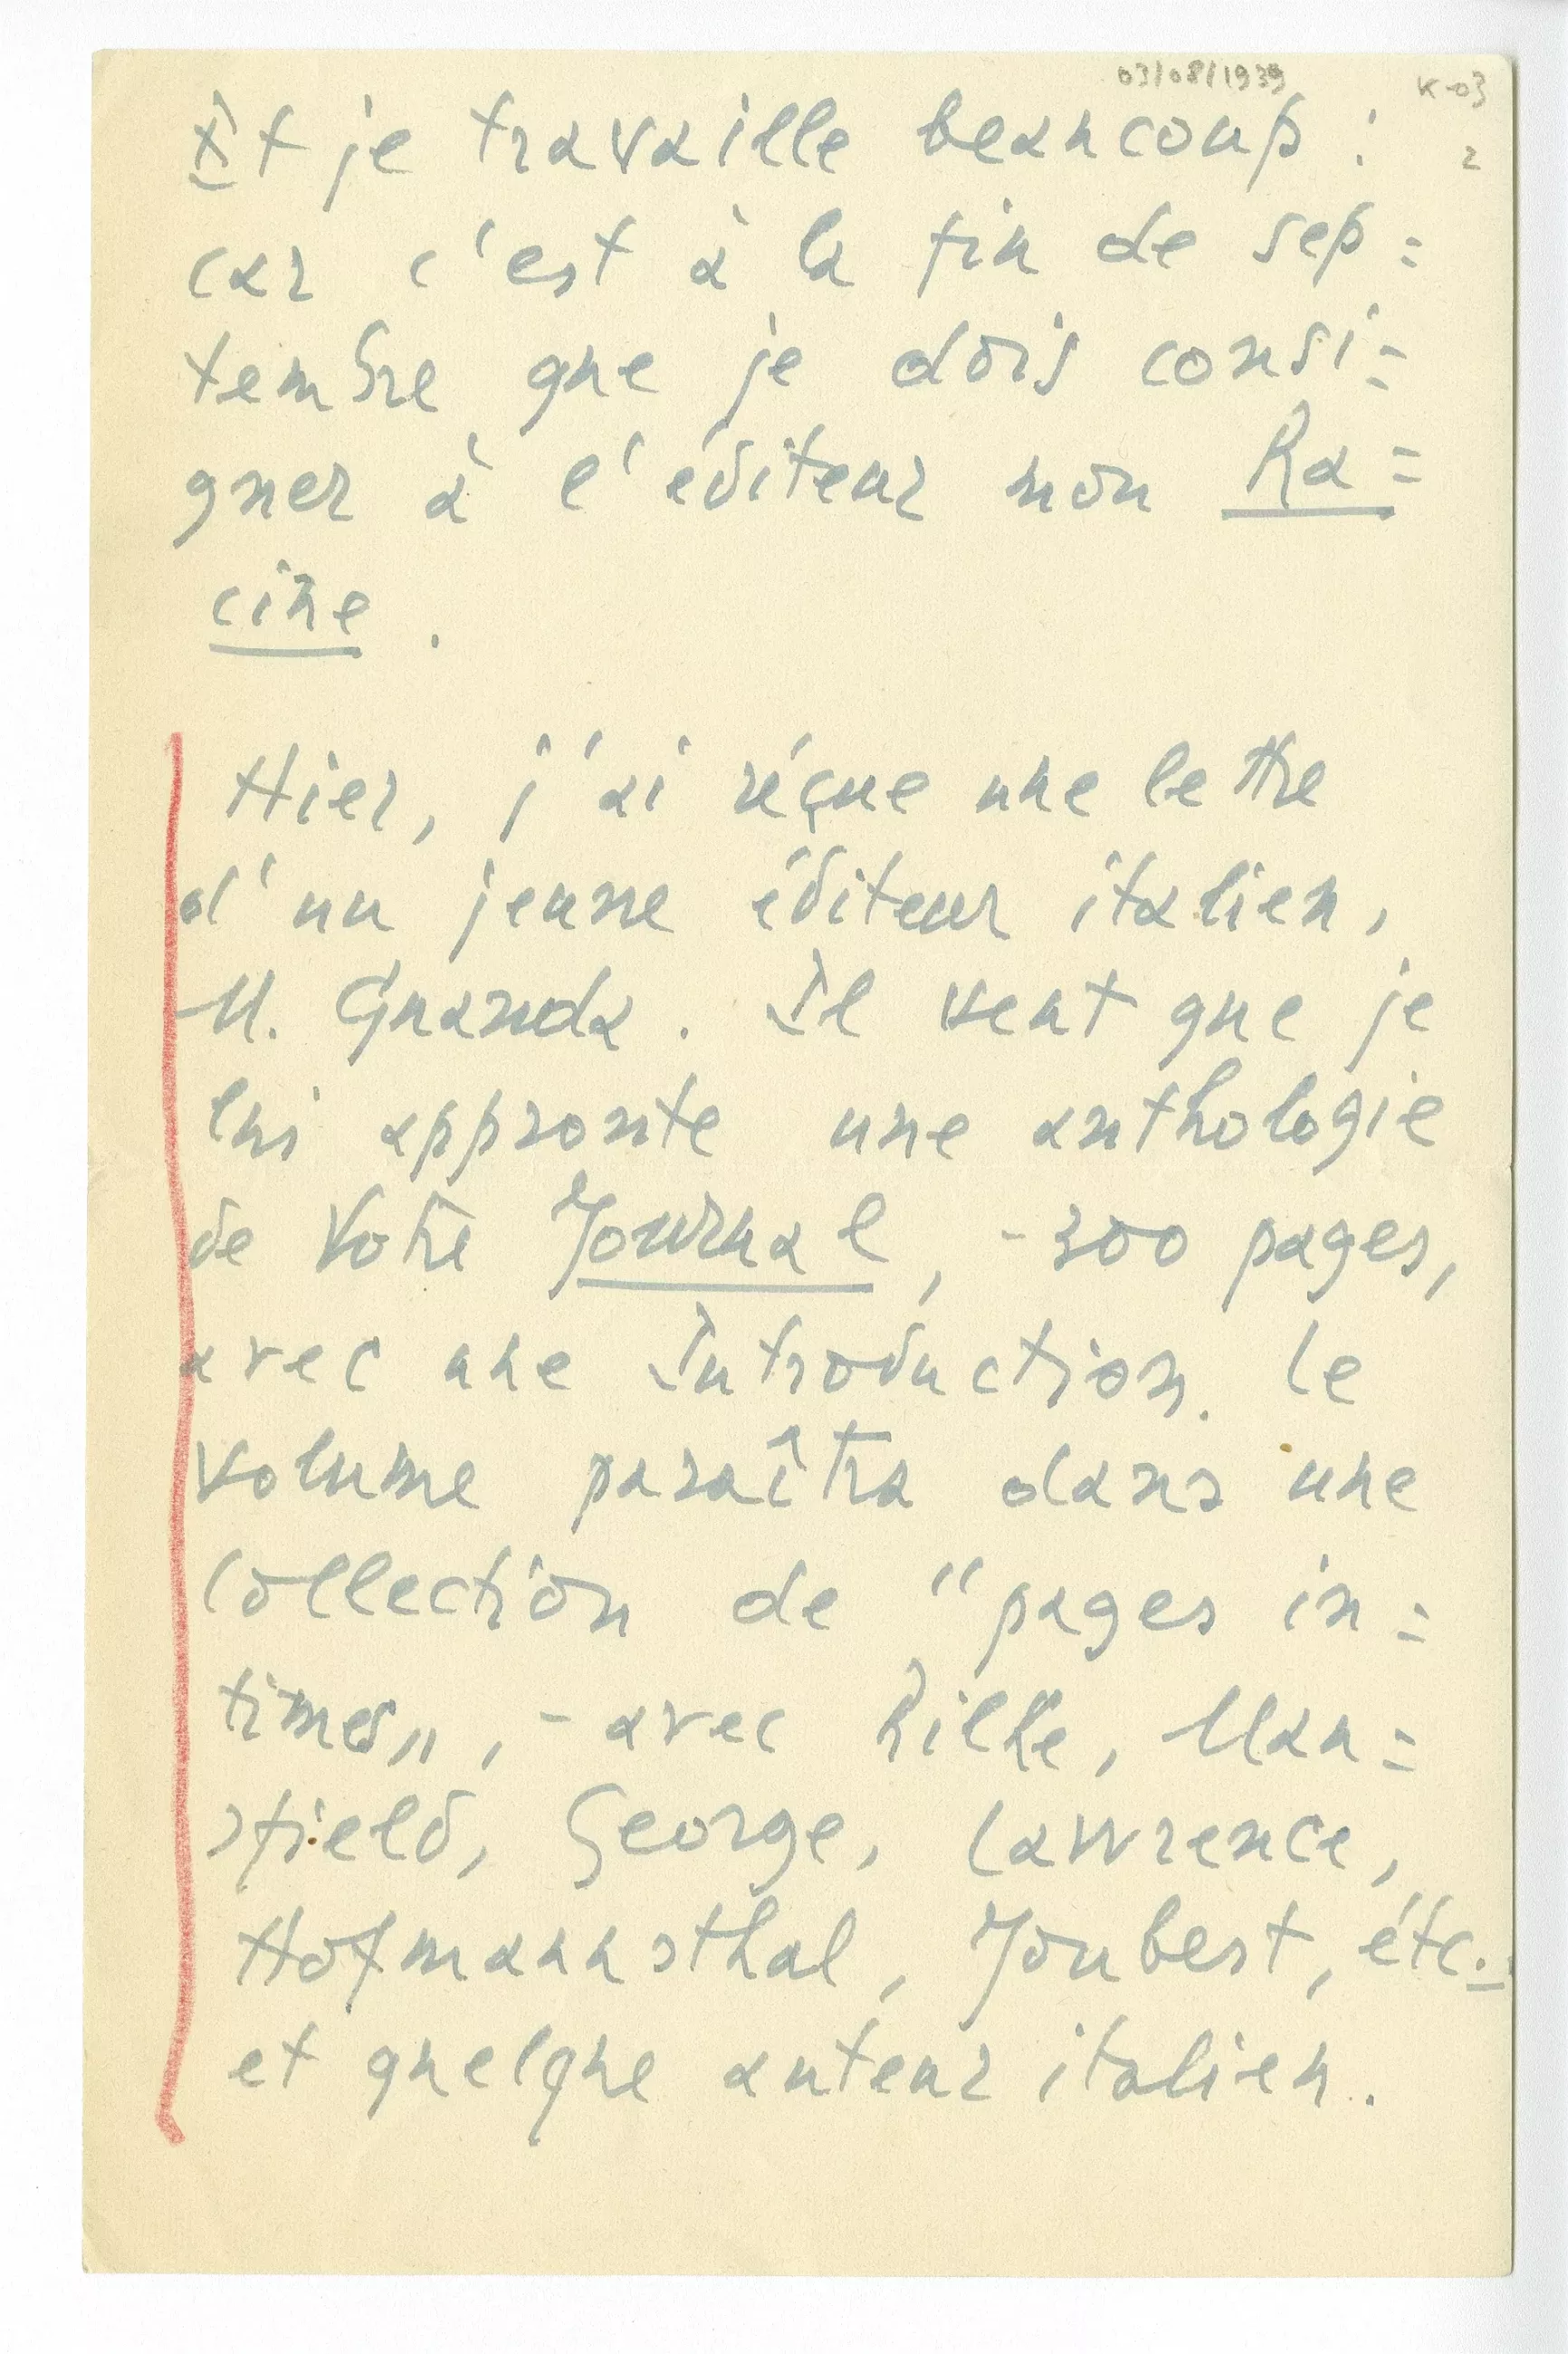 03/08/1939
K-03
2
Et je travaille beaucoup :
car c'est à la fin de sep=
tembre que je dois consi=
gner à l'éditeur mon Ra=
cine.
Hier, j'ai réçue une lettre
d'un jeune éditeur italien,
M. Guanda. Il veut que je
lui appronte une anthologie
de Votre Journal, - 300 pages,
avec une Introduction. Le
volume paraîtra dans une
collection de "pages in=
times", - avec Rilke, Man=
sfield, George, Lawrence,
Hofmannsthal, Joubert, étc..
et quelque auteur italien.